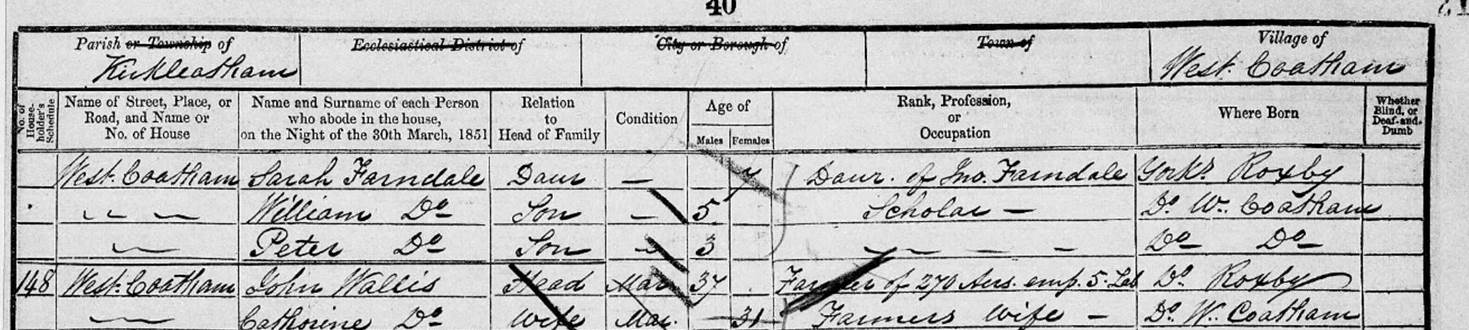 40
Parish or Township of
Ecclesiastical District of
City or Borough of
Town of
Village of
Kirkleatham
West Coatham
No. of House-holder's Schedule
Name of Street, Place, or Road, and Name or No. of House
Name and Surname of each Person who abode in the house, on the Night of the 30th March, 1851
Relation to Head of Family
Condition
Age of
Males
Females
Rank, Profession, or Occupation
Where Born
Whether Blind, or Deaf-and-Dumb
West Coatham Sarah Farndale Daur — 7 Daur. of Jno. Farndale Yorks Roxby
" " William Do Son — 5 Scholar — Do W. Coatham
" Peter Do Son — 3 — — — — Do Do
148 West Coatham John Wallis Head Mar 37 Farmer of 270 Acrs. emp. 5 Lab Do Roxby
" Catherine Do Wife Mar. 31 Farmers Wife — Do W. Coatham